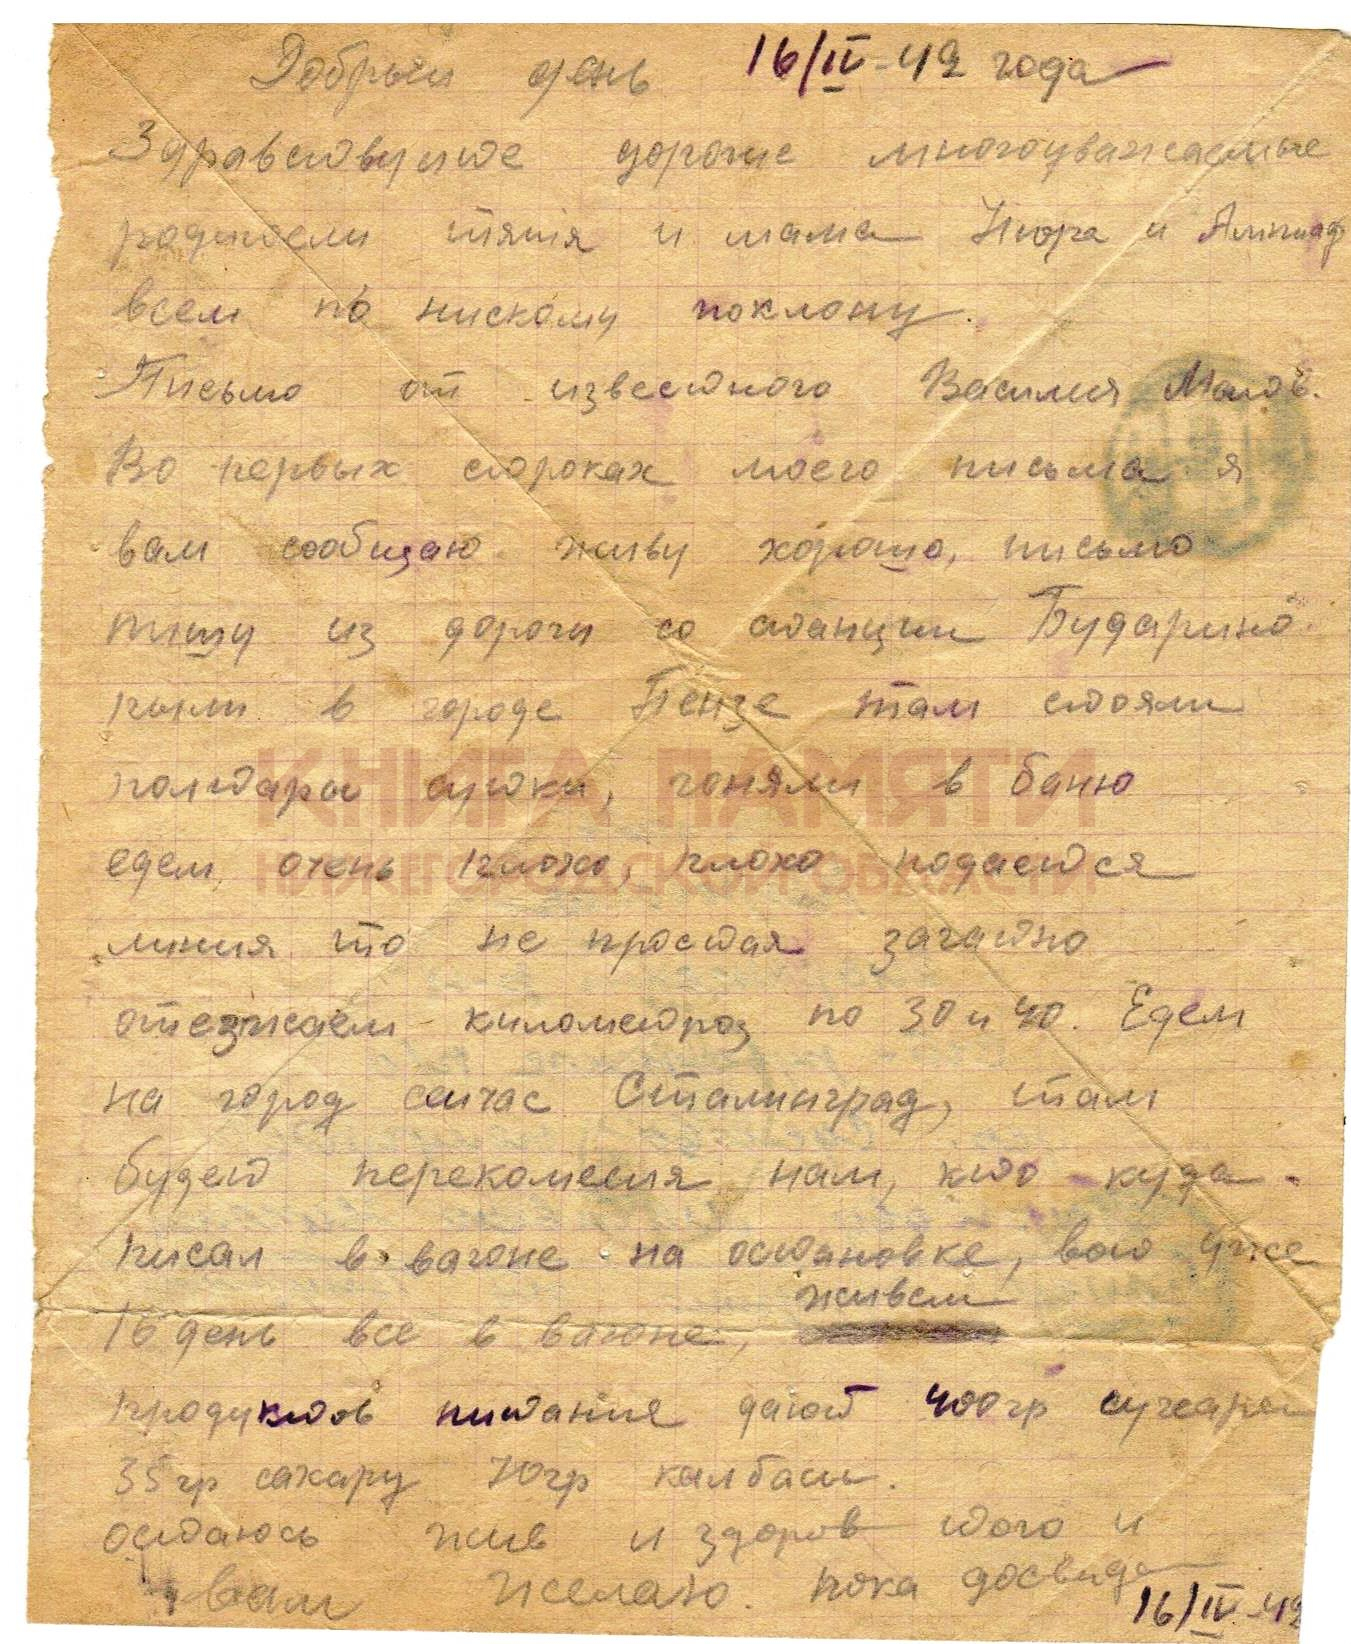 Добрый день 16/IV-42 года
Здравствуйте дорогие многоуважаемые
родители тятя и мама Нюра и
всем по нискому поклону.
Письмо от известного Василия
Во первых строках моего письма я
вам сообщаю живу хорошо, письмо
пишу из дороги со станции Бударино.
были в городе Пензе там стояли
полтары сутки, гоняли в баню
едем очень плохо, плохо подается
линия то не простая
отезжаем километроз по 30 и 40. Едем
на город сейчас Сталинград, там
будет нам, кто куда.
писал в вагоне на остановке, вот уже
живем
16 день все в вагоне,
продуктов питания дают 400гр сухарей
35гр сахару 70гр калбасы.
остаюсь жив и здоров того и
вам желаю. пока досвида
16/IV-42
КНИГА ПАМЯТИ
НИЖЕГОРОДСКОЙ ОБЛАСТИ